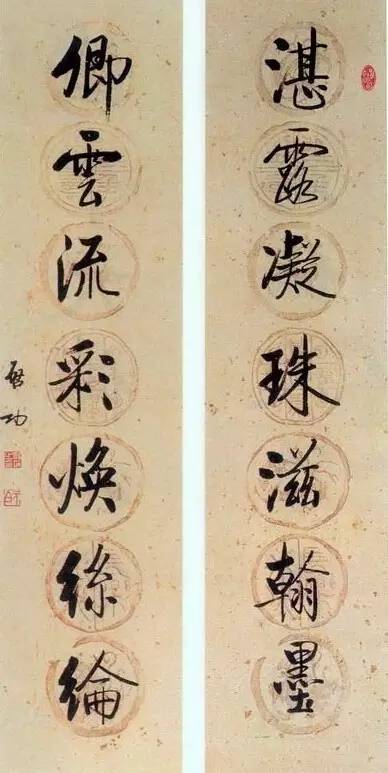 湛露凝珠滋翰墨
卿雲流彩焕絲綸
啓功